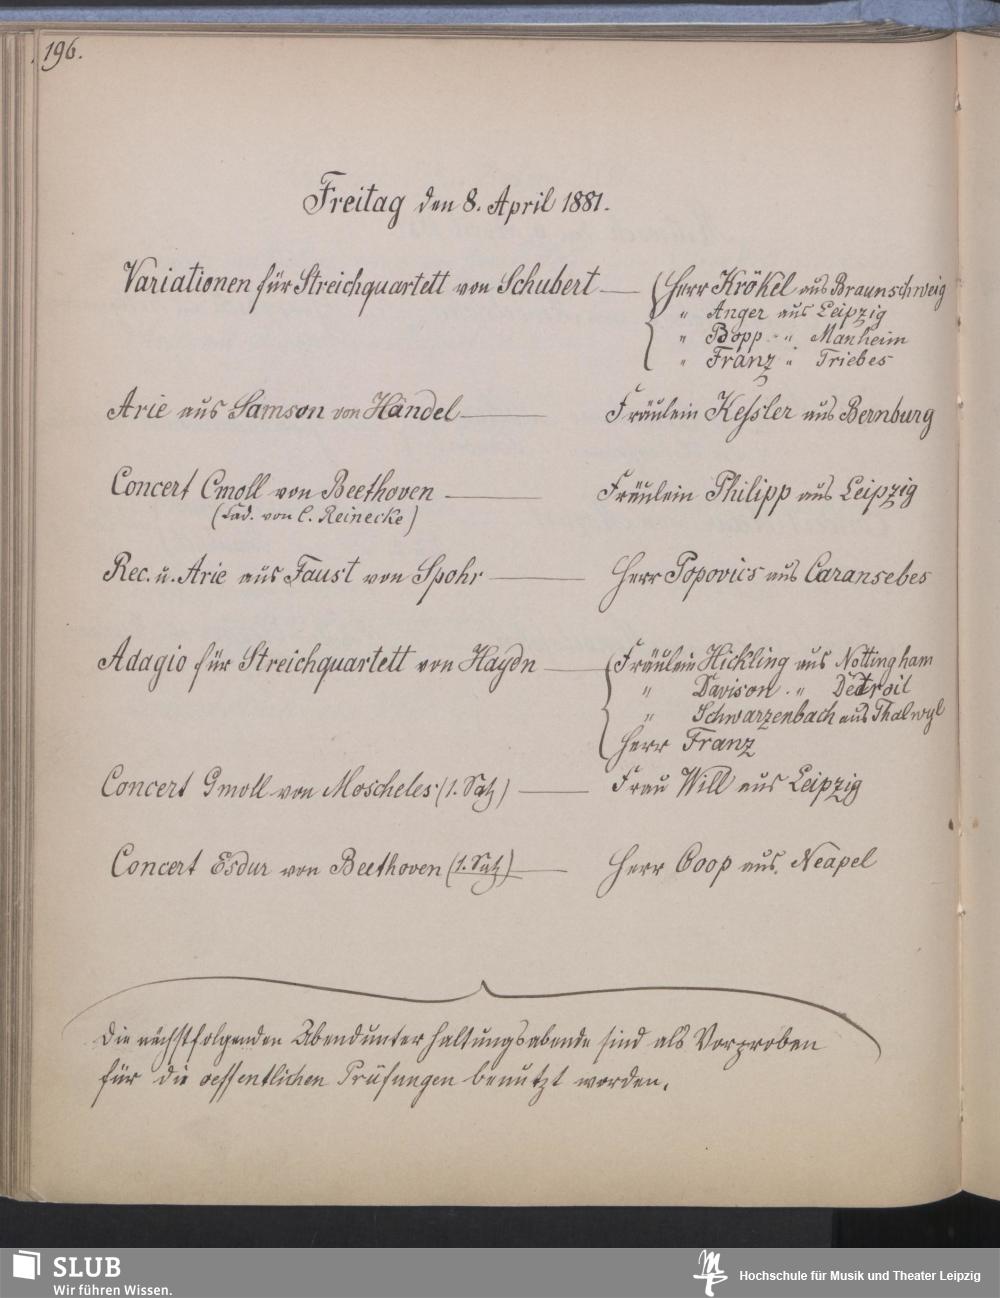 196.
Freitag den 8. April 1881.
Variationen für Streichquartett von Schubert — Herr Krökel aus Braunschweig
" Anger aus Leipzig
" Bopp " Manheim
" Franz " Triebes
Arie aus Samson von Händel — Fräulein Kessler aus Bernburg
Concert Cmoll von Beethoven — Fräulein Philipp aus Leipzig
(Cad. von C. Reinecke)
Rec. u. Arie aus Faust von Spohr — Herr Popovics aus Caransebes
Adagio für Streichquartett von Haydn — Fräulein Hickling aus Nottingham
" Davison " Detroit
" Schwarzenbach aus Thalwyl
Herr Franz
Concert Gmoll von Moscheles (1. Satz) — Frau Will aus Leipzig
Concert Esdur von Beethoven (1. Satz) — Herr Coop aus Neapel
Die nächstfolgenden Abendunterhaltungsabende sind als Vorproben
für die oeffentlichen Prüfungen benutzt worden.
SLUB
Wir führen Wissen.
Hochschule für Musik und Theater Leipzig